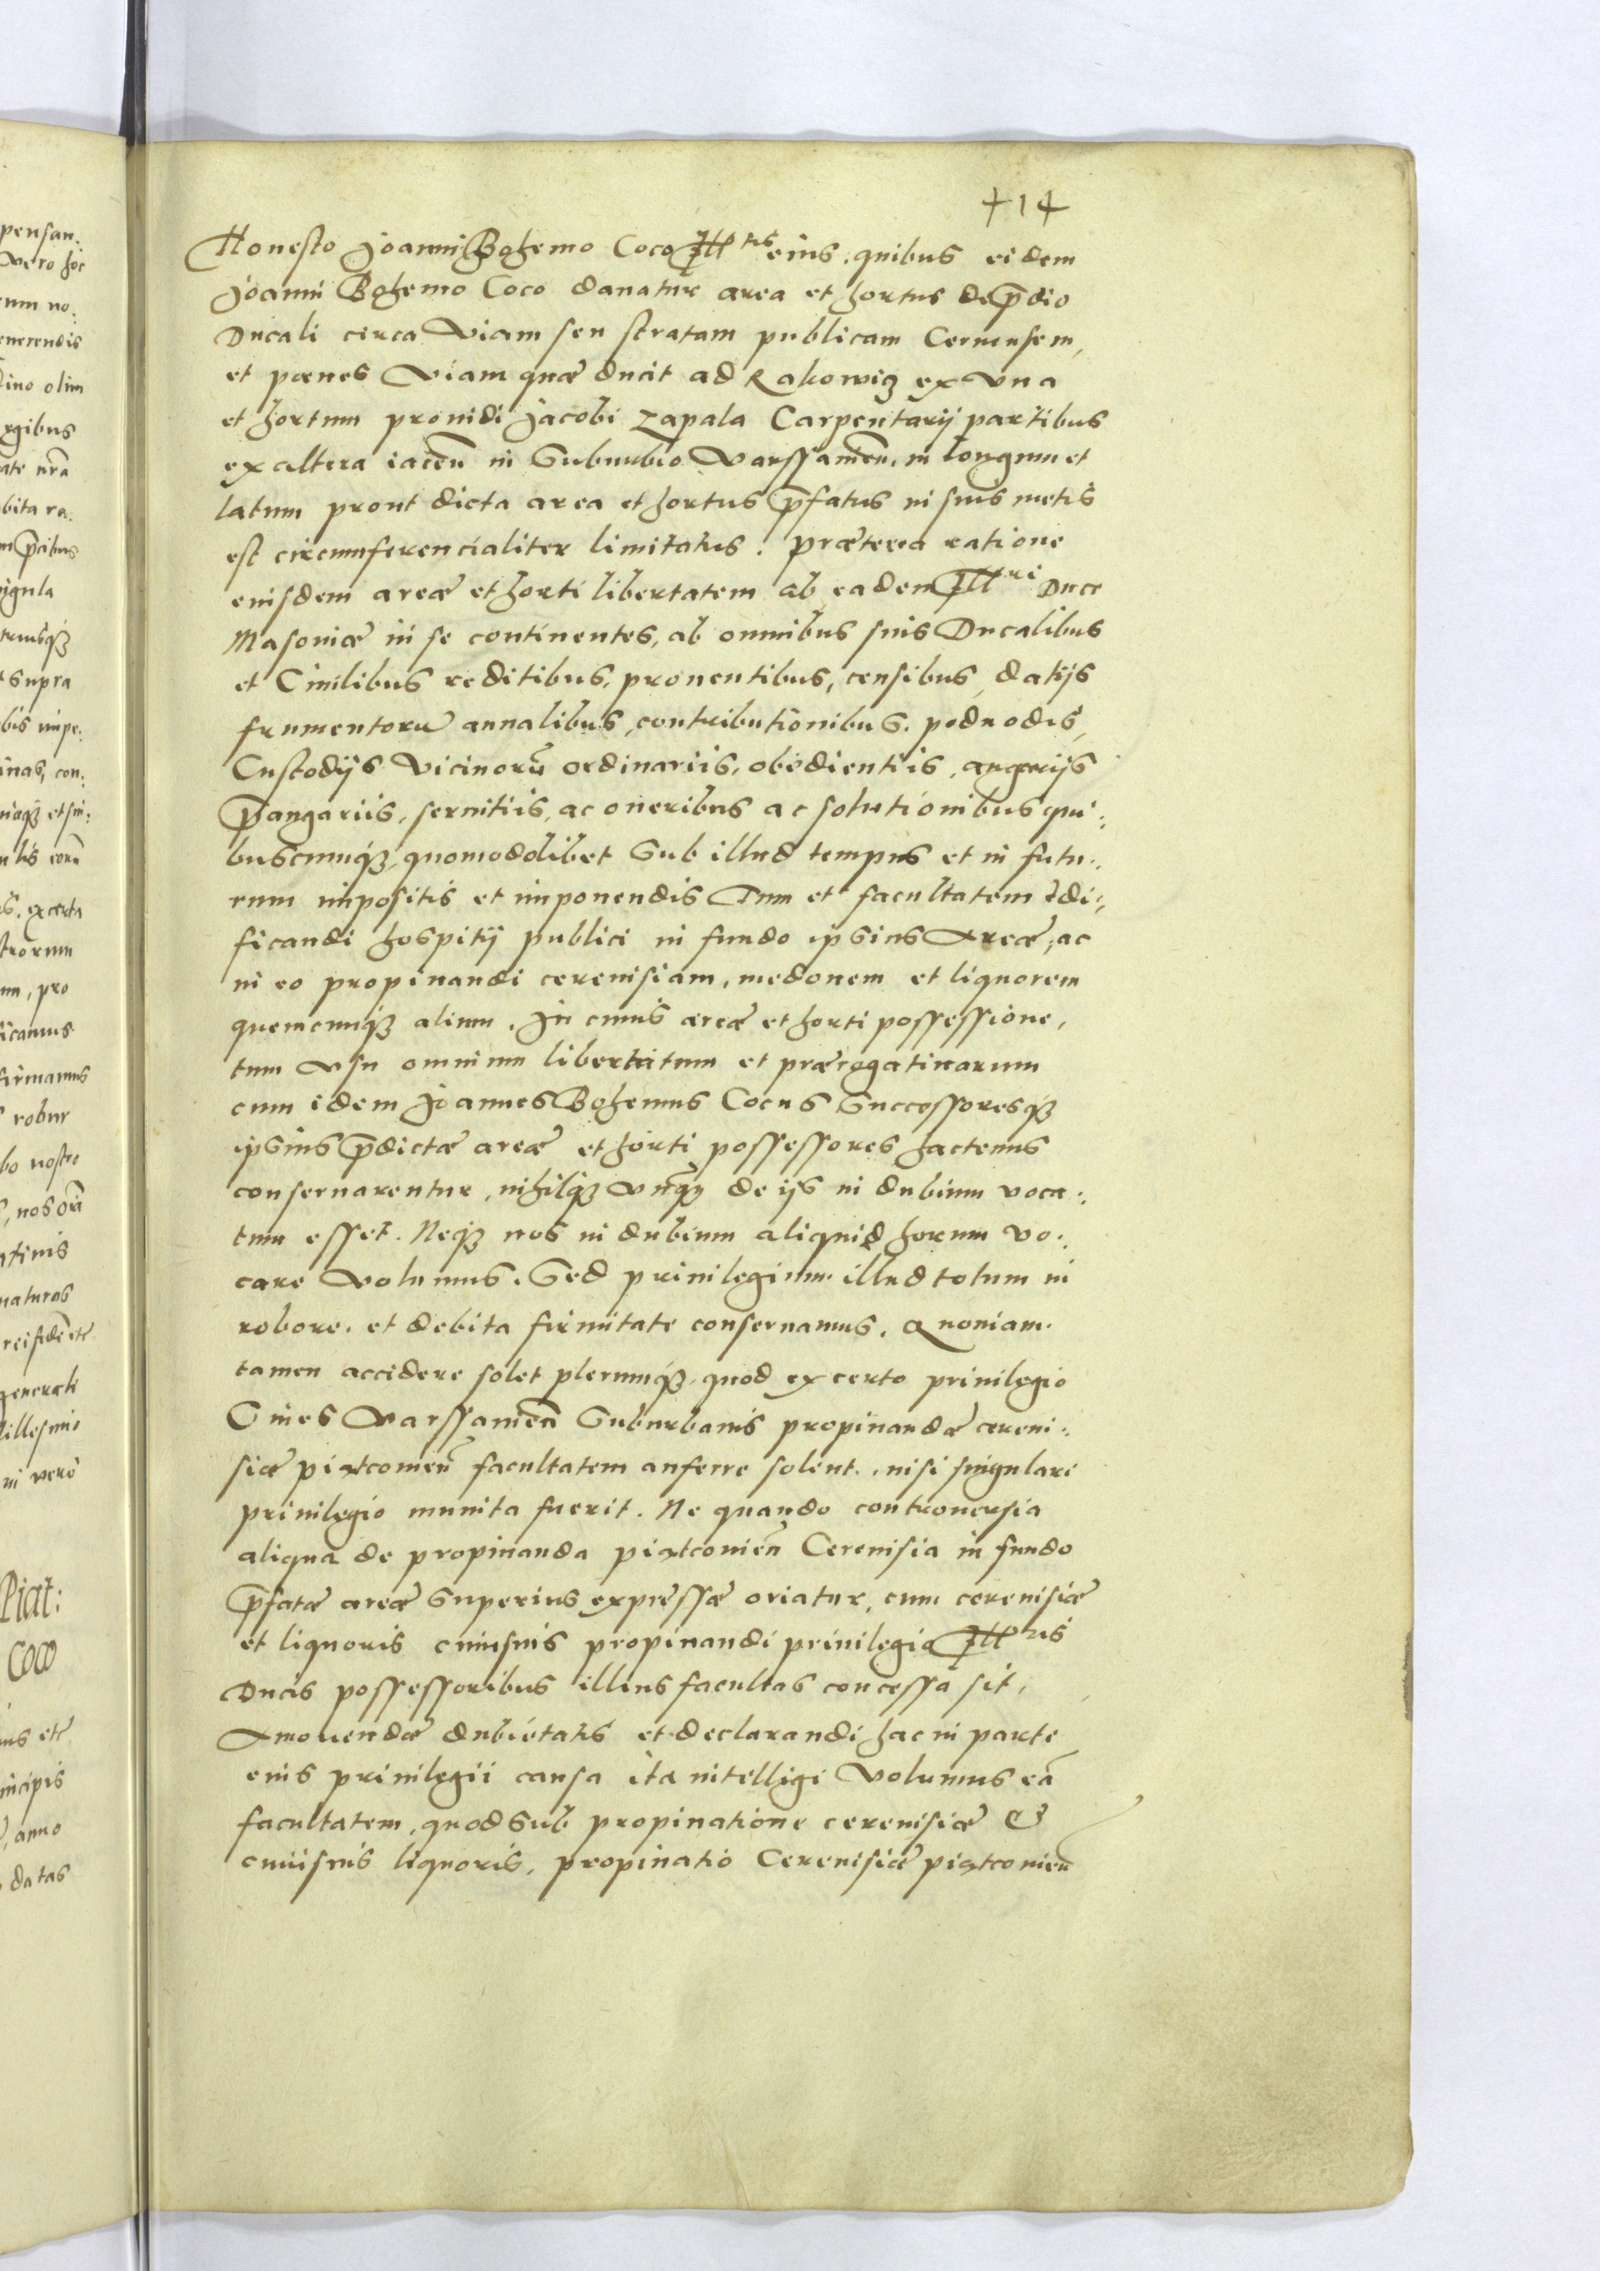 414
Honesto Joanni Bohemo Coco Ill^tis eius, quibus eidem
Joanni Bohemo Coco donatur area et hortus de p̄dio
Ducali circa Viam seu stratam publicam Cernensem,
et poenes Viam quæ ducit ad Rakowiz ex Vna
et hortum prouidi Jacobi Zapala Carpentarij partibus
ex altera iaceñ in Suburbio Varssauieñ. in longum et
latum prout dicta area et hortus p̄fatus in suis metis
est circumferencialiter limitatus. præterea ratione
eiusdem areæ et horti libertatem ab eadem Ill^ri Duce
Masouiæ in se continentes, ab omnibus suis Ducalibus
et Ciuilibus reditibus, prouentibus, censibus, datijs
frumentorū annalibus, contributionibus. poduodis,
Custodijs Vicinorū ordinariis, obedientiis, angarijs
p̄angariis, seruitiis, ac oneribus ac solutionibus qui:
buscunq3 quomodolibet Sub illud tempus et in futu:
rum impositis et imponendis Tum et facultatem ędi:
ficandi hospitij publici in fundo ipsius Areæ, ac
in eo propinandi cereuisiam, medonem et liquorem
quemcunq3 alium. In cuius areæ et horti possessione,
tum Vsu omnium libertatum et prærogatiuarum
cum idem Joannes Bohemus Cocus Successoresq3
ipsius p̄dictæ areæ et horti possessores hactenus
conseruarentur, nihilq3 Vnq̄ de ijs in dubium voca:
tum esset. Neq3 nos in dubium aliquid horum vo:
care Volumus. Sed priuilegium illud totum in
robore. et debita firmitate conseruamus. Quoniam
tamen accidere solet plerumq3 quod ex certo priuilegio
Ciues Varssauieñ Suburbanis propinandæ cereui:
siæ piątcouieñ facultatem auferre solent. nisi singulari
priuilegio munita fuerit. Ne quando controuersia
aliqua de propinanda piątcouieñ Cereuisia in fundo
p̄fatæ areæ Superius expressæ oriatur, cum cereuisiæ
et liquoris cuiusuis propinandi priuilegio Ill^ris
Ducis possessoribus illius facultas concessa sit,
Amouendæ dubietatis et declarandi hac in parte
eius priuilegii causa ita intelligi Volumus eā
facultatem, quod Sub propinatione cereuisiæ &
cuiusuis liquoris, propinatio Cereuisiæ piątcouieñ
pensan:
Vero hoc
rum no:
olim
ate nr̄a
bita ra:
supra
inas, con:
excerta
nn, pro
firmamus
robur
bo nostro
naturas
vero
Piąt:
coco
anno
datas